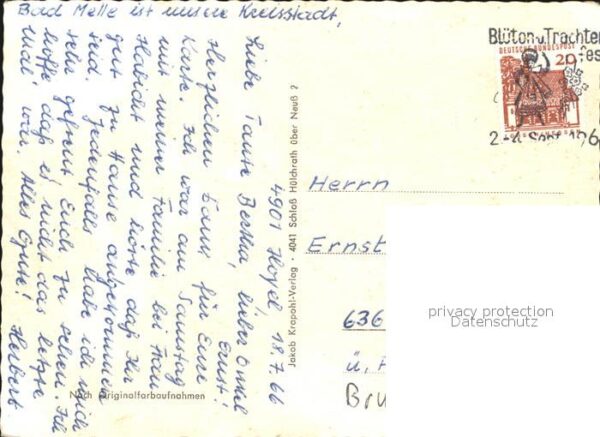 Bad Melle ist unsere Kreisstadt,
4901 Hoyel 18.7.66
Liebe Tante Bertha, lieber Onkel
Ernst!
Herzlichen Dank für Eure
Karte. Ich war am Samstag
mit meiner Familie bei Frau
Habicht und hörte daß Ihr
gut zu Hause angekommen
seid. Jedenfalls habe ich mich
sehr gefreut Euch zu sehen. Ich
hoffe daß es nicht das letzte
Mal war. Alles Gute! Herbert
Nach Originalfarbaufnahmen
Jakob Krapohl-Verlag · 4041 Schloß Hülchrath über Neuß 2
Blüten-u.Trachten
fes
DEUTSCHE BUNDESPOST
20
2.-4. Sept. 196
Herrn
Ernst
636
ü.
Bru
privacy protection
Datenschutz